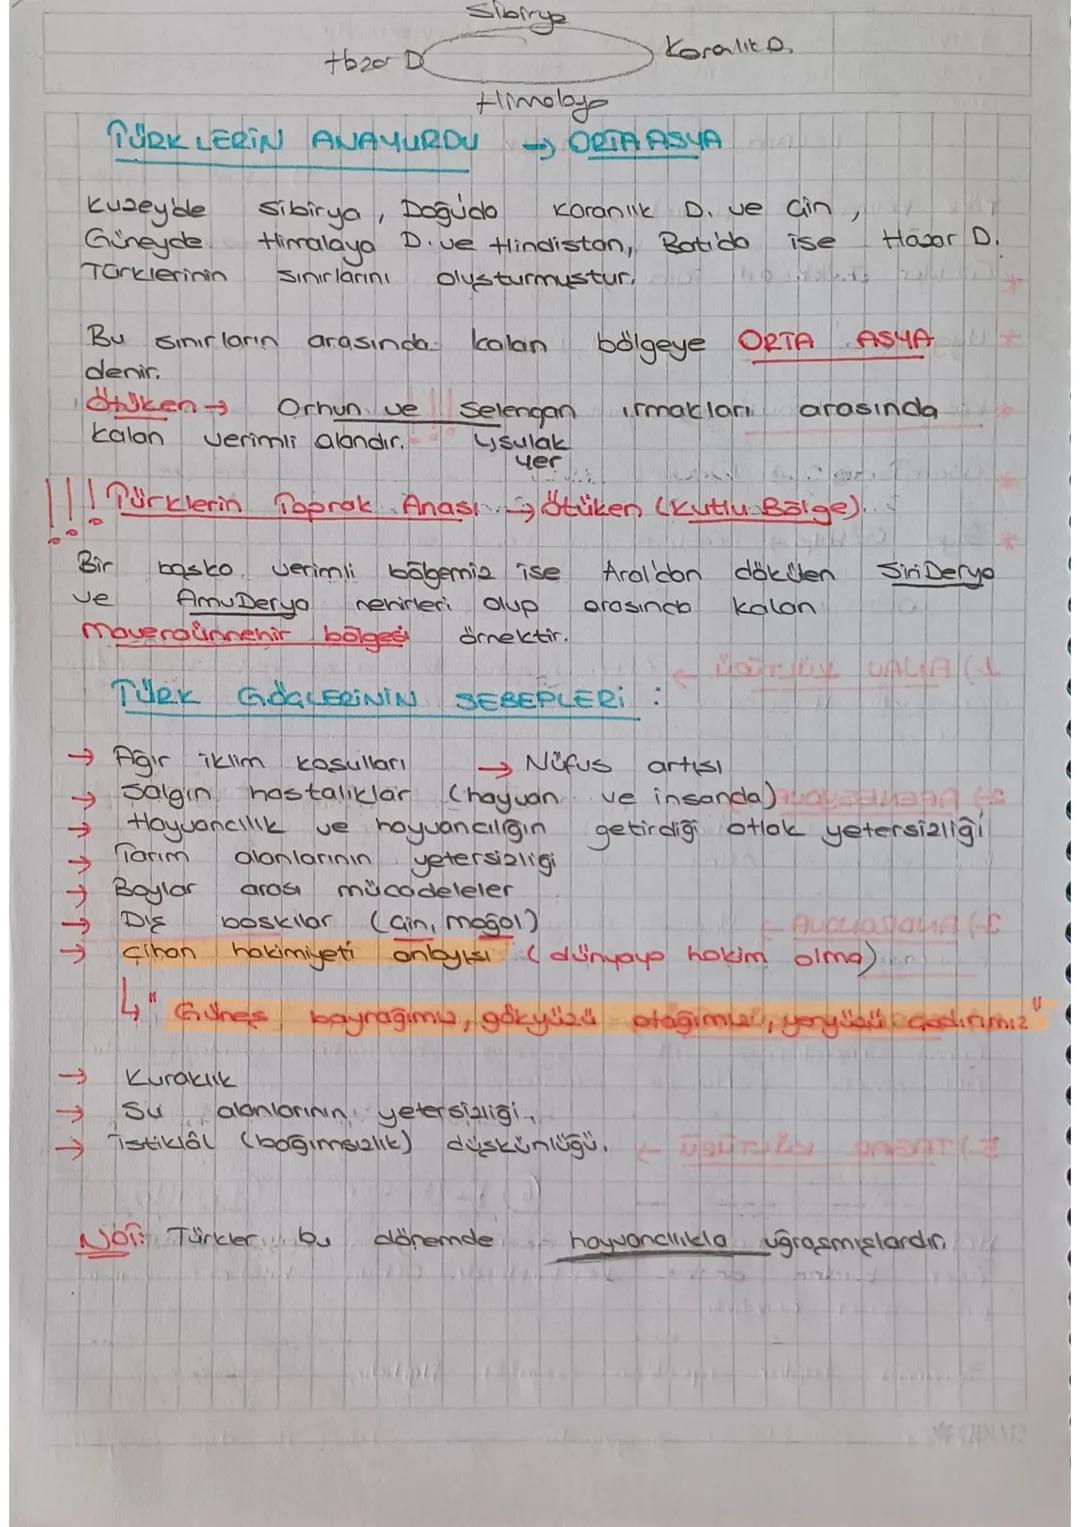 Sibirya
Hazar D
Karalık D.
Himalaya
TÜRKLERİN ANAYURDU → ORTA ASYA
Kuzeyde Sibirya, Doğuda Karanlık D. ve Çin,
Güneyde Himalaya D. ve Hindistan, Batı'da ise Hazar D.
Türklerinin sınırlarını oluşturmuştur.
Bu sınırların arasında kalan bölgeye ORTA ASYA
denir.
Ötüken → Orhun ve Selengan ırmakları arasında
kalan verimli alandır.
↳sulak
yer
!!! Türklerin Toprak Anası → Ötüken (Kutlu Bölge).
Bir başka verimli bölgemiz ise Aral'dan dökülen Siri Derya
ve Amu Derya nehirleri olup arasında kalan
Maveraünnehir bölgesi örnektir.
TÜRK GÖÇLERİNİN SEBEPLERİ :
→ Ağır iklim koşulları → Nüfus artışı
→ Salgın hastalıklar (hayvan ve insanda)
→ Hayvancılık ve hayvancılığın getirdiği otlak yetersizliği
→ Tarım alanlarının yetersizliği
→ Boylar arası mücadeleler
→ Dış baskılar (Çin, moğol)
→ Cihan hakimiyeti anlayışı (dünyaya hakim olma)
↳ "Güneş bayrağımız, gökyüzü otağımız, yeryüzü çadırımız"
→ Kuraklık
→ Su alanlarının yetersizliği.
→ İstiklâl (bağımsızlık) düşkünlüğü.
NOT: Türkler bu dönemde hayvancılıkla uğraşmışlardır.